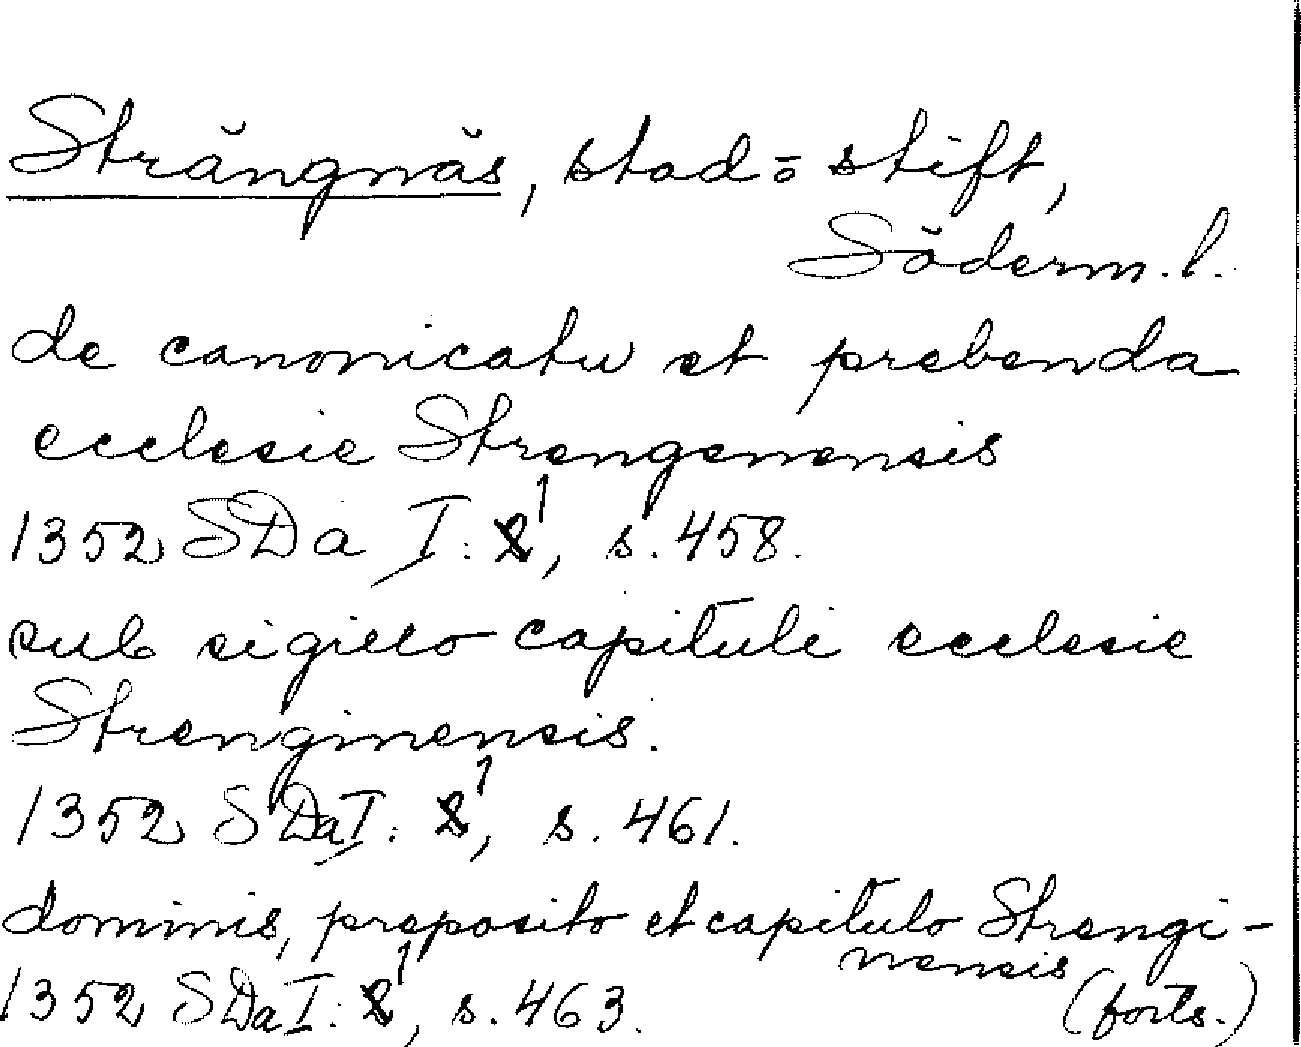 Strängnäs, stad o. stift,
Söderm.l.
de canonicatu et prebenda
ecclesie Strengenensis
1352 SDa I: 1, s. 458.
sub sigillo capituli ecclesie
Strenginensis.
1352 SDa I: 1, s. 461.
dominis, preposito et capitulo Strengi-
nensis (forts.)
1352 SDa I: 1, s. 463.